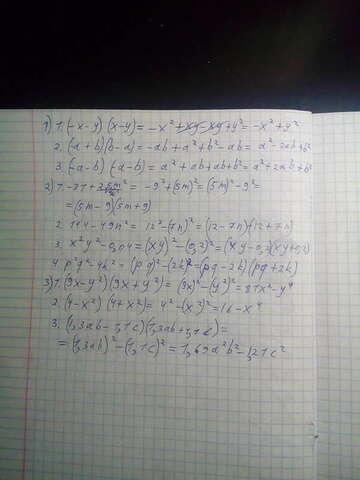 1) 1. (-x-y)(x-y) = -x² + xy - xy + y² = -x² + y²
2. (-a+b)(b-a) = -ab + a² + b² - ab = a² - 2ab + b²
3. (-a-b)(-a-b) = a² + ab + ab + b² = a² + 2ab + b²
2) 1. -81 + 25m² = -9² + (5m)² = (5m)² - 9² =
= (5m-9)(5m+9)
2. 144 - 49n² = 12² - (7n)² = (12-7n)(12+7n)
3. x²y² - 0,04 = (xy)² - (0,2)² = (xy-0,2)(xy+0,2)
4. p²q² - 4k² = (pq)² - (2k)² = (pq-2k)(pq+2k)
3) 1. (9x-y²)(9x+y²) = (9x)² - (y²)² = 81x² - y⁴
2. (4-x²)(4+x²) = 4² - (x²)² = 16 - x⁴
3. (1,3ab - 1,1c)(1,3ab + 1,1c) =
= (1,3ab)² - (1,1c)² = 1,69a²b² - 1,21c²